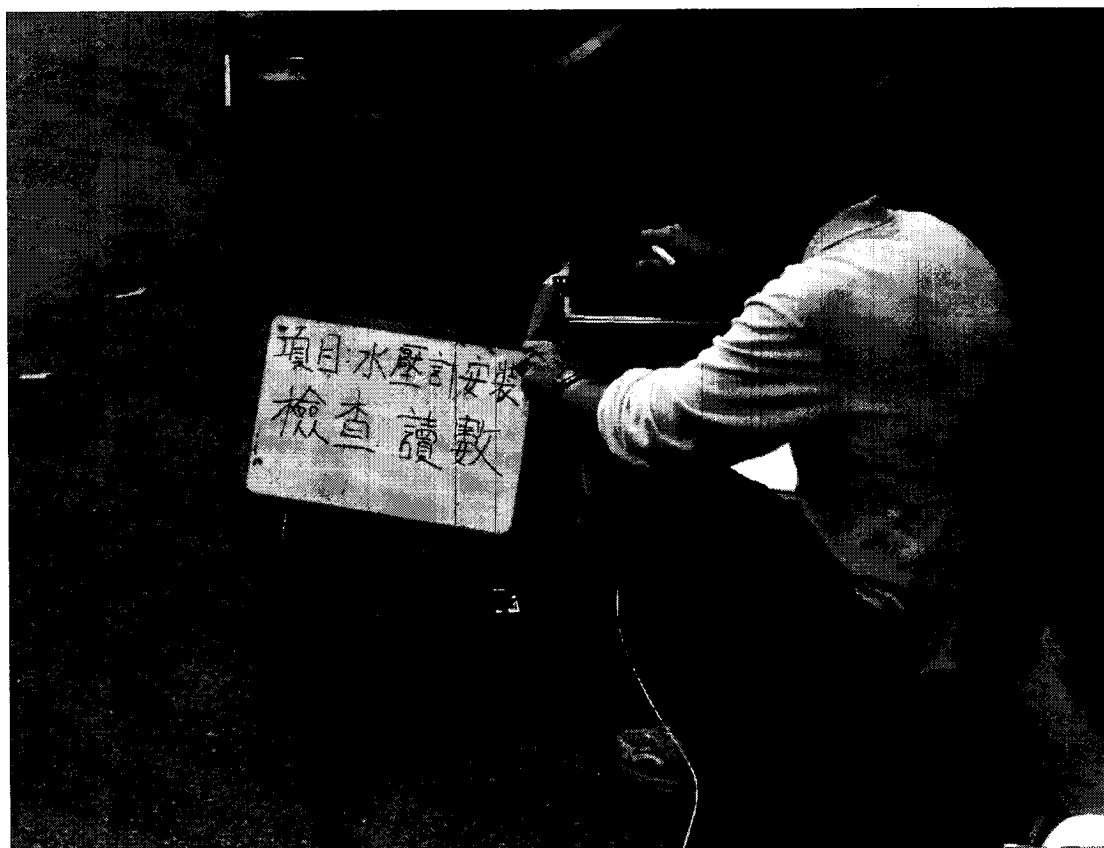 項目:水壓計按裝
檢查 讀數